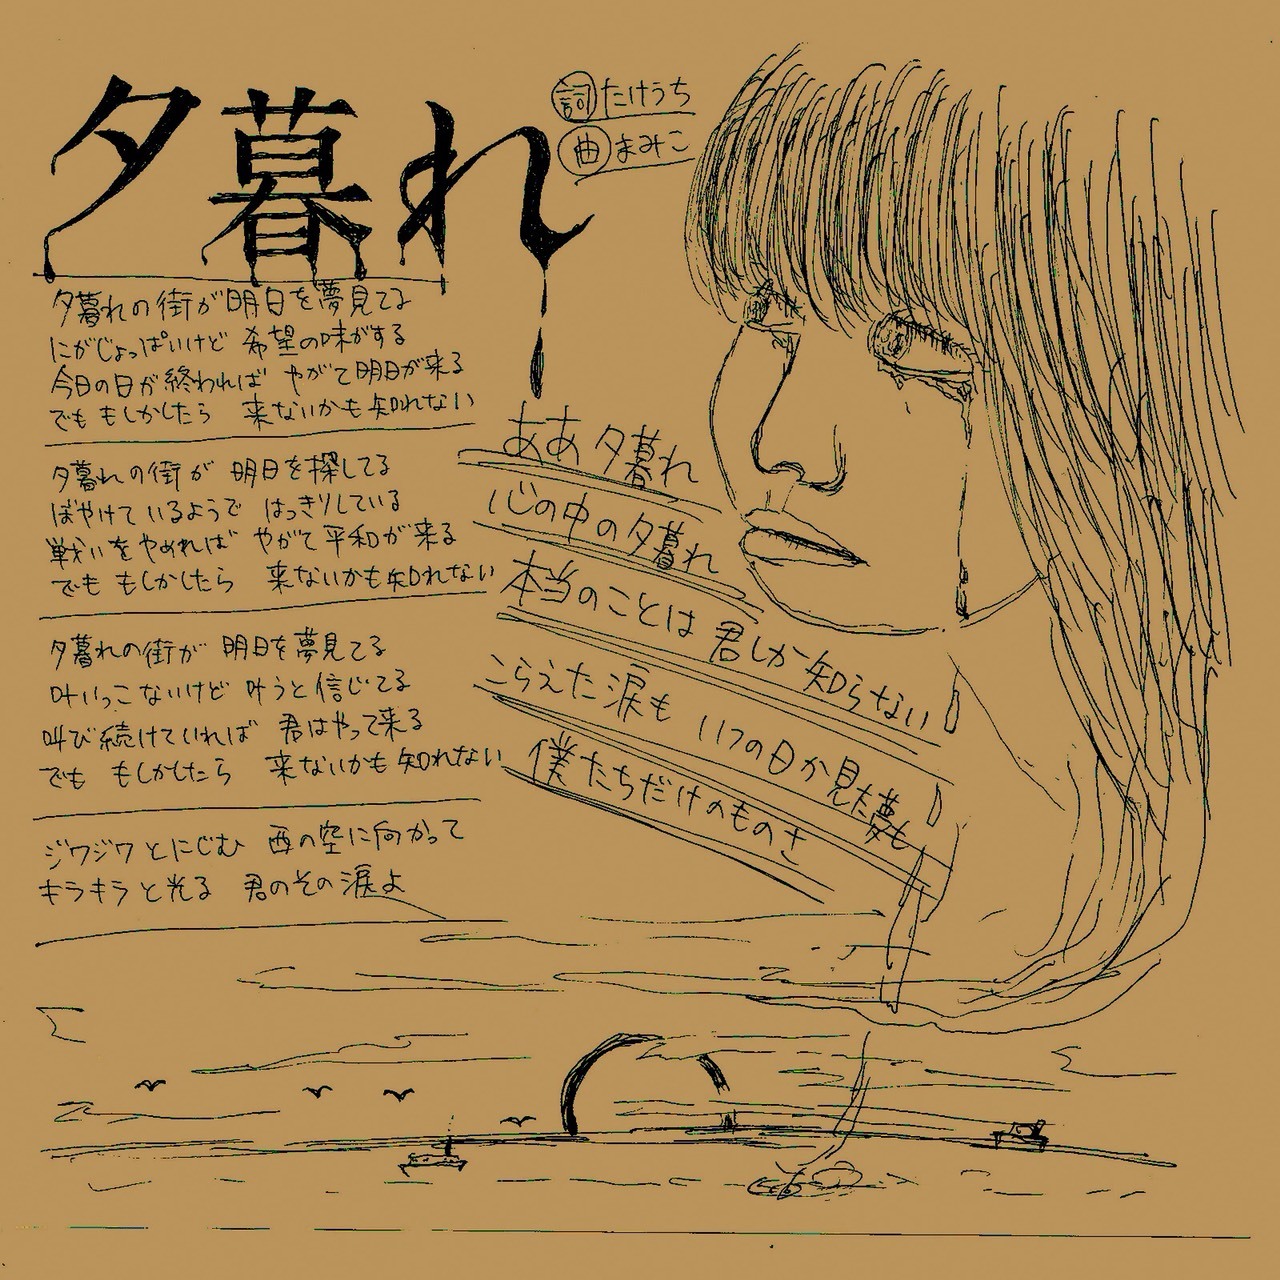 夕暮れ
詞 たけうち
曲 まみこ
夕暮れの街が明日を夢見てる
にがじょっぱいけど 希望の味がする
今日の日が終われば やがて明日が来る
でも もしかしたら 来ないかも知れない
夕暮れの街が 明日を探してる
ぼやけているようで はっきりしている
戦いをやめれば やがて平和が来る
でも もしかしたら 来ないかも知れない
夕暮れの街が 明日を夢見てる
叶いっこないけど 叶うと信じてる
叫び続けていれば 君はやって来る
でも もしかしたら 来ないかも知れない
ジワジワとにじむ 西の空に向かって
キラキラと光る 君のその涙よ
ああ 夕暮れ
心の中の夕暮れ
本当のことは 君しか知らない
こらえた涙も いつの日か見た夢も
僕たちだけのものさ